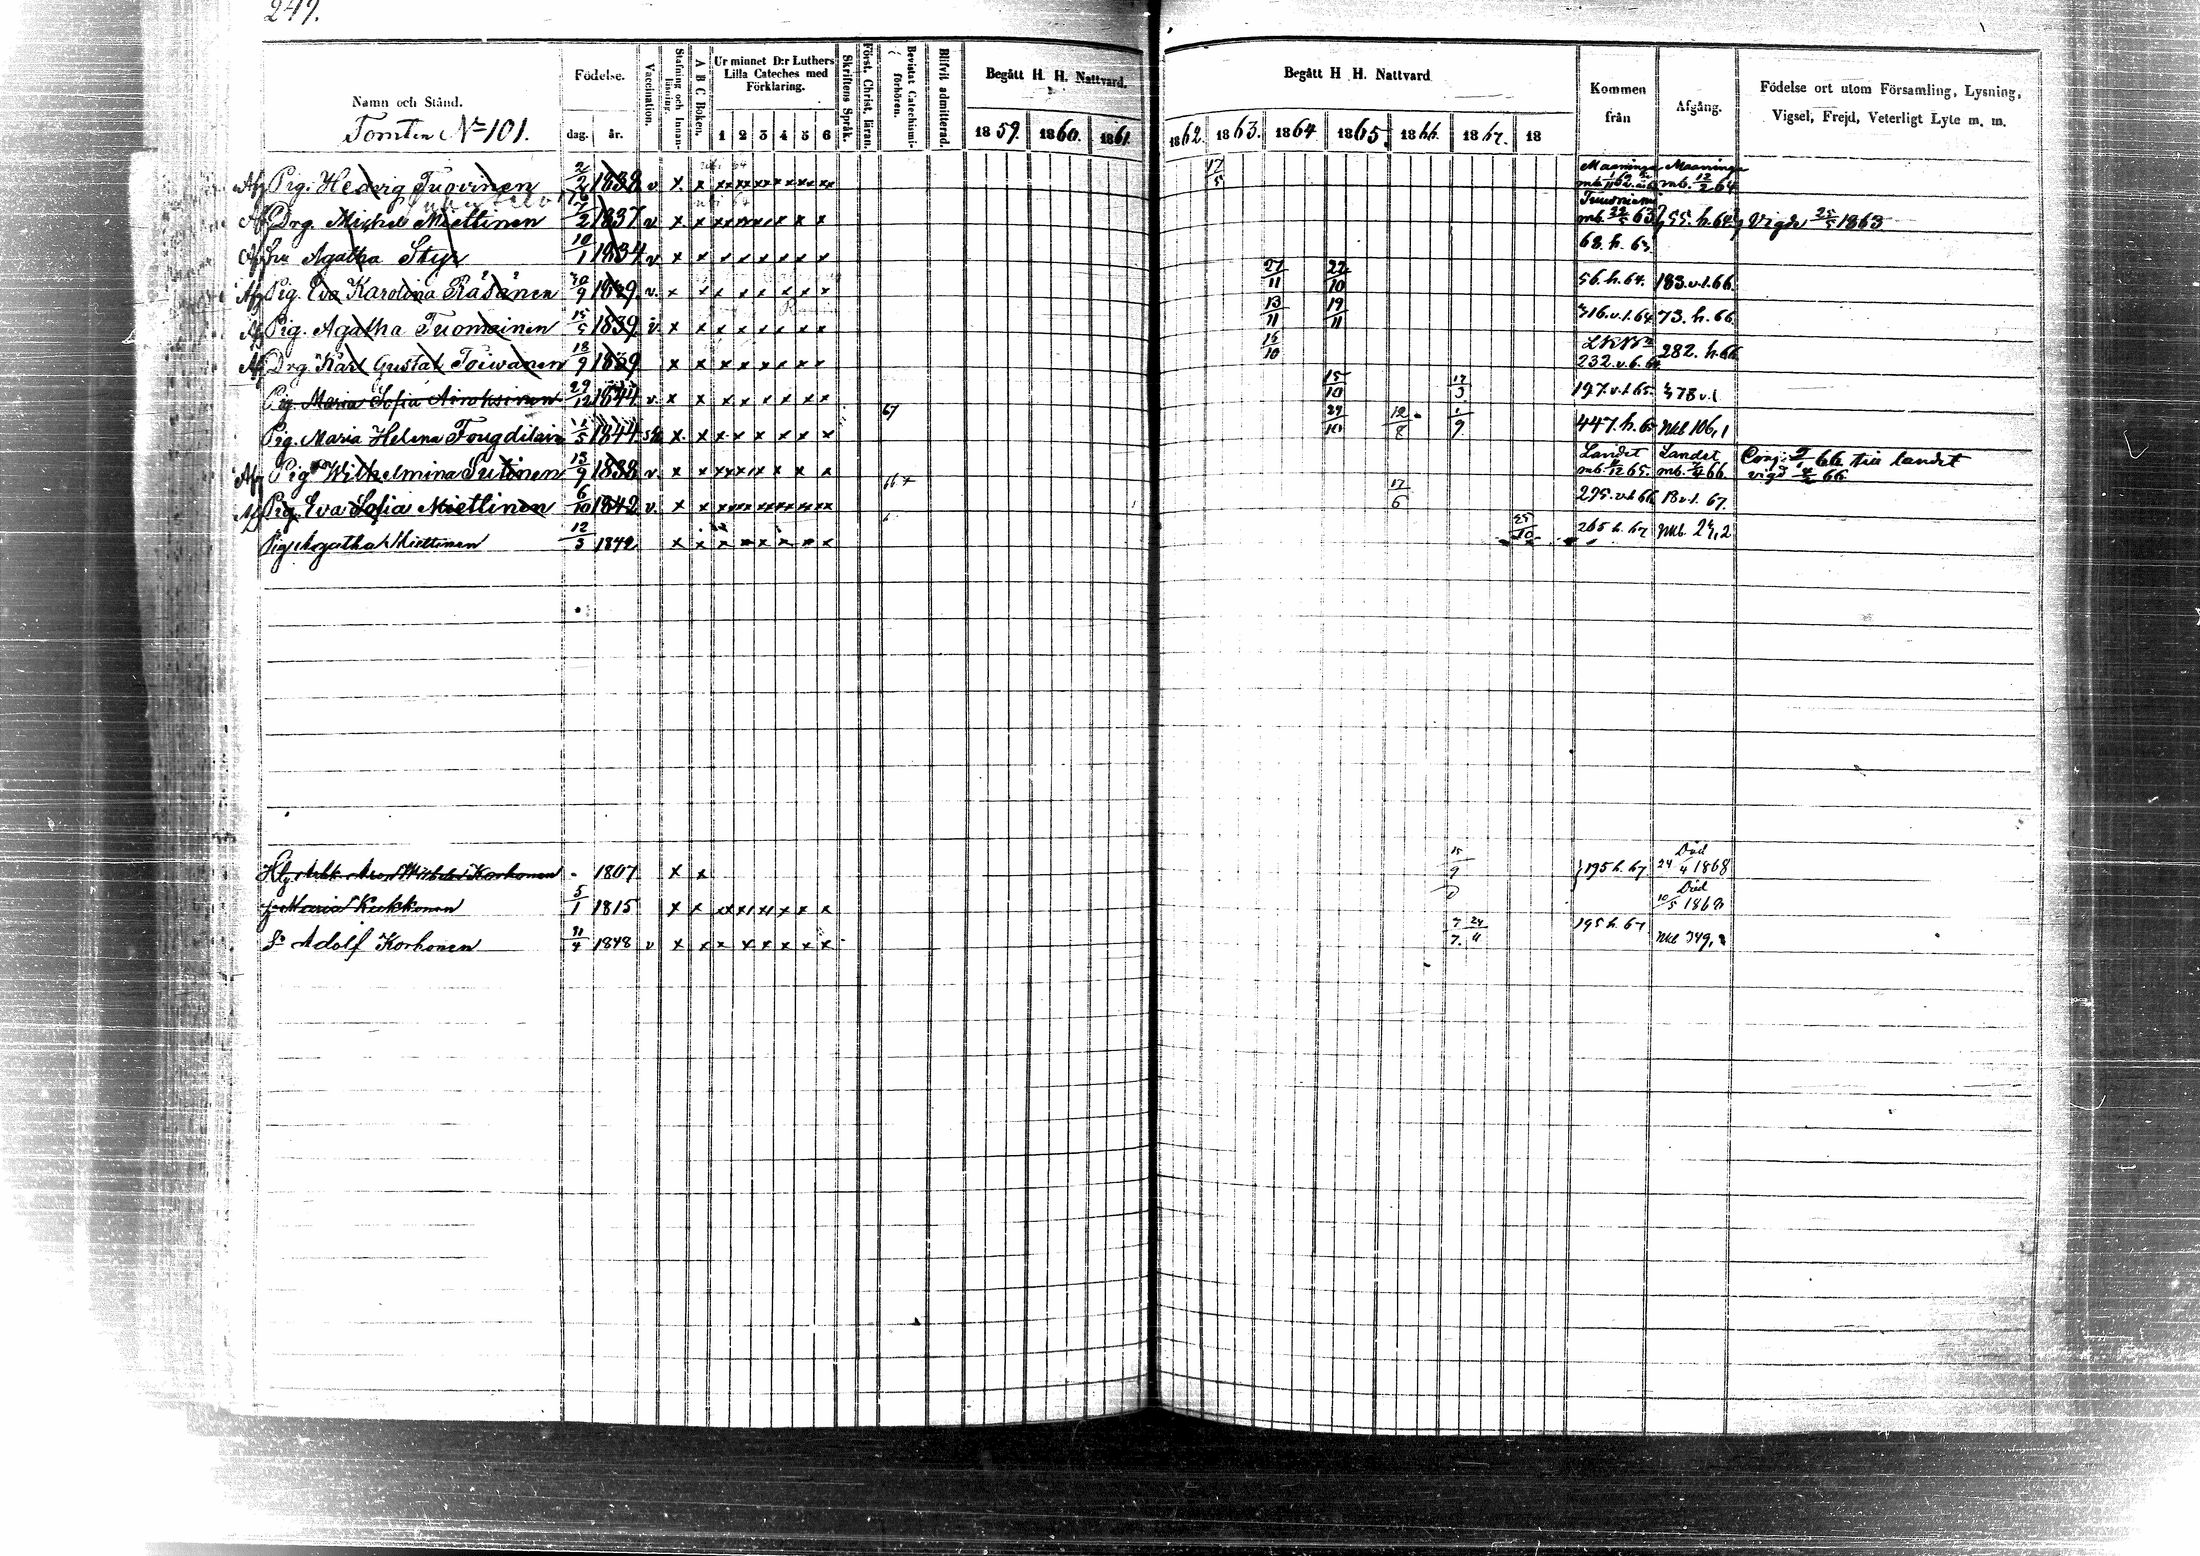 249.
Namn och Stånd.
Tomten No 101.
Födelse.
dag. år.
Vaccination.
Stafning och Innanläsning.
A B C Boken.
Ur minnet D:r Luthers Lilla Cateches med Förklaring.
1 2 3 4 5 6
Skriftens Språk.
Först. Christ. läran.
Bevistat Catechismi-förhören.
Blifvit admitterad.
Begått H. H. Nattvard.
1859. 1860. 1861.
Begått H. H. Nattvard
1862. 1863. 1864. 1865. 1866. 1867. 18
Kommen från
Afgång.
Födelse ort utom Församling, Lysning, Vigsel, Frejd, Veterligt Lyte m. m.
Afg Pig. Hedvig Tuovinen 2/2 1838 v x x 17/5 Maaninga Maaninga mb. 12/2 64
Afg Drg. Michel Miettinen 7/2 1837 v x x 55. h. 64 Vigde 25/5 1863
Agatha Styf 10/1 1834 v x x x x x x x x 68. h. 63
Afg Pig. Eva Karolina Räsänen 30/9 1839 v. x x x x x x x x 27/11 22/10 56. h. 64. 183. v. l. 66.
Afg Pig. Agatha Tuomainen 15/5 1839 v. x x x x x x x x 13/11 19/11 316. v. l. 64 73. h. 66.
Afg Drg. Karl Gustaf Toiwanen 18/9 1839 x x x x x x x x 15/10 282. h. 66
Pig. Maria Sofia Airaksinen 29/12 1844 v. x x x x x x x x 15/10 17/3 197. v. l. 65. 378 v. l.
Pig. Maria Helena Fougdilain 1844 x x x x x x x x 67 29/10 12/8 1/9 447. h. 65 Nkb 106,1
Afg Pig. Wilhelmina Sutinen 13/9 1838 v. x x x x x x x x Landet mb. 65. Landet mb. 66. till landet vigd 66
Pig. Eva Sofia Miettinen 6/10 1842 v. x x 66 17/6 295. v. l. 66 18 v. l. 67.
Pig. Agatha Miettinen 12/3 1842 x x x x x x x x 25/10 265 h. 67 Nkb. 24,2
1807 x x 15/9 195 h. 67 Död 24/4 1868
Maria Kukkonen 5/1 1815 x x x x x x x x Död 10/5 1868
Sn Adolf Korhonen 11/4 1848 v x x x x x x x x 7/7. 24/11 195 h. 67 Nkb 349,